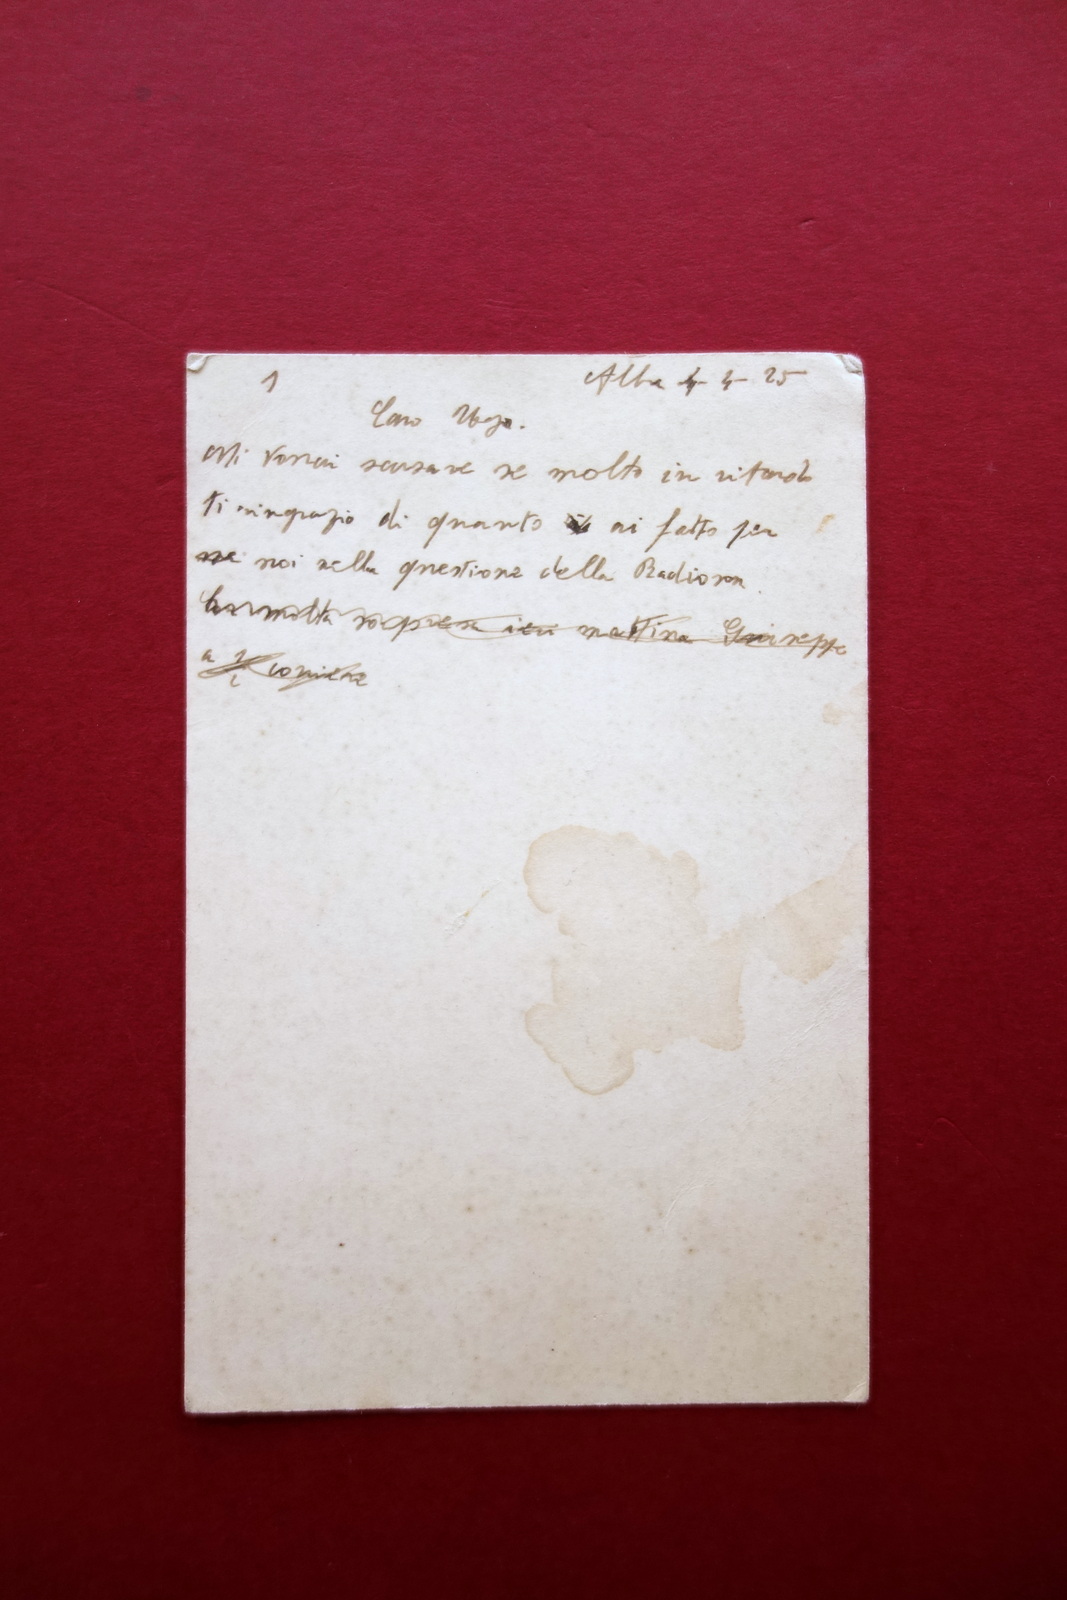 1 Alba 4-4-25
Caro Ugo.
Mi vorrai scusare se molto in ritardo
ti ringrazio di quanto ai fatto per
ne noi nella questione della Radioson.
molta sorpresa ieri mattina Giuseppe
a